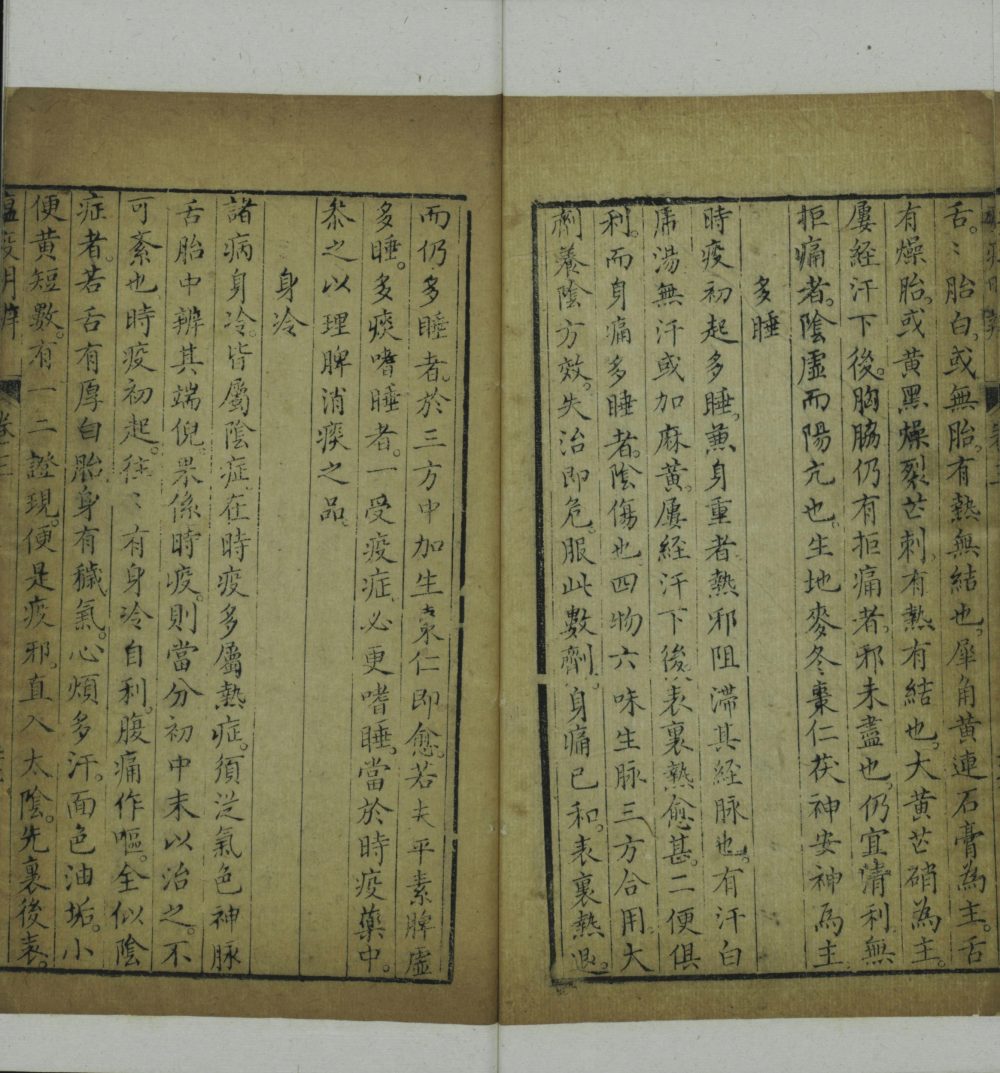 舌。〻胎白。或無胎。有熱無結也。犀角黄連石膏為主。舌
有燥胎。或黄黑燥裂芒刺。有熱有結也。大黄芒硝為主。
屢経汗下後。胸脇仍有拒痛者。邪未盡也。仍宜清利。無
拒痛者。陰虚而陽亢也。生地麥冬棗仁茯神安神為主。
多睡
時疫初起多睡。兼身重者熱邪阻滞其経脉也。有汗白
虎湯無汗或加麻黄。屢経汗下後。表裏熱愈甚。二便俱
利。而身痛多睡者。陰傷也四物六味生脉三方合用大
劑養陰方效。失治即危。服此數劑。身痛已和。表裏熱退。
而仍多睡者。於三方中加生棗仁即愈。若夫平素脾虚
多睡。多痰嗜睡者。一受疫症。必更嗜睡。當於時疫藥中。
叅之以理脾消痰之品。
身冷
諸病身冷。皆屬陰症。在時疫多屬熱症。須從氣色神脉
舌胎中辨其端倪。果係時疫。則當分初中末以治之。不
可紊也時疫初起。往〻有身冷自利。腹痛作嘔。全似陰
症者。若舌有厚白胎。身有穢氣。心煩多汗。面色油垢。小
便黄短數。有一二證現。便是疫邪。直入太陰。先裏後表。
瘟疫明辨 卷三